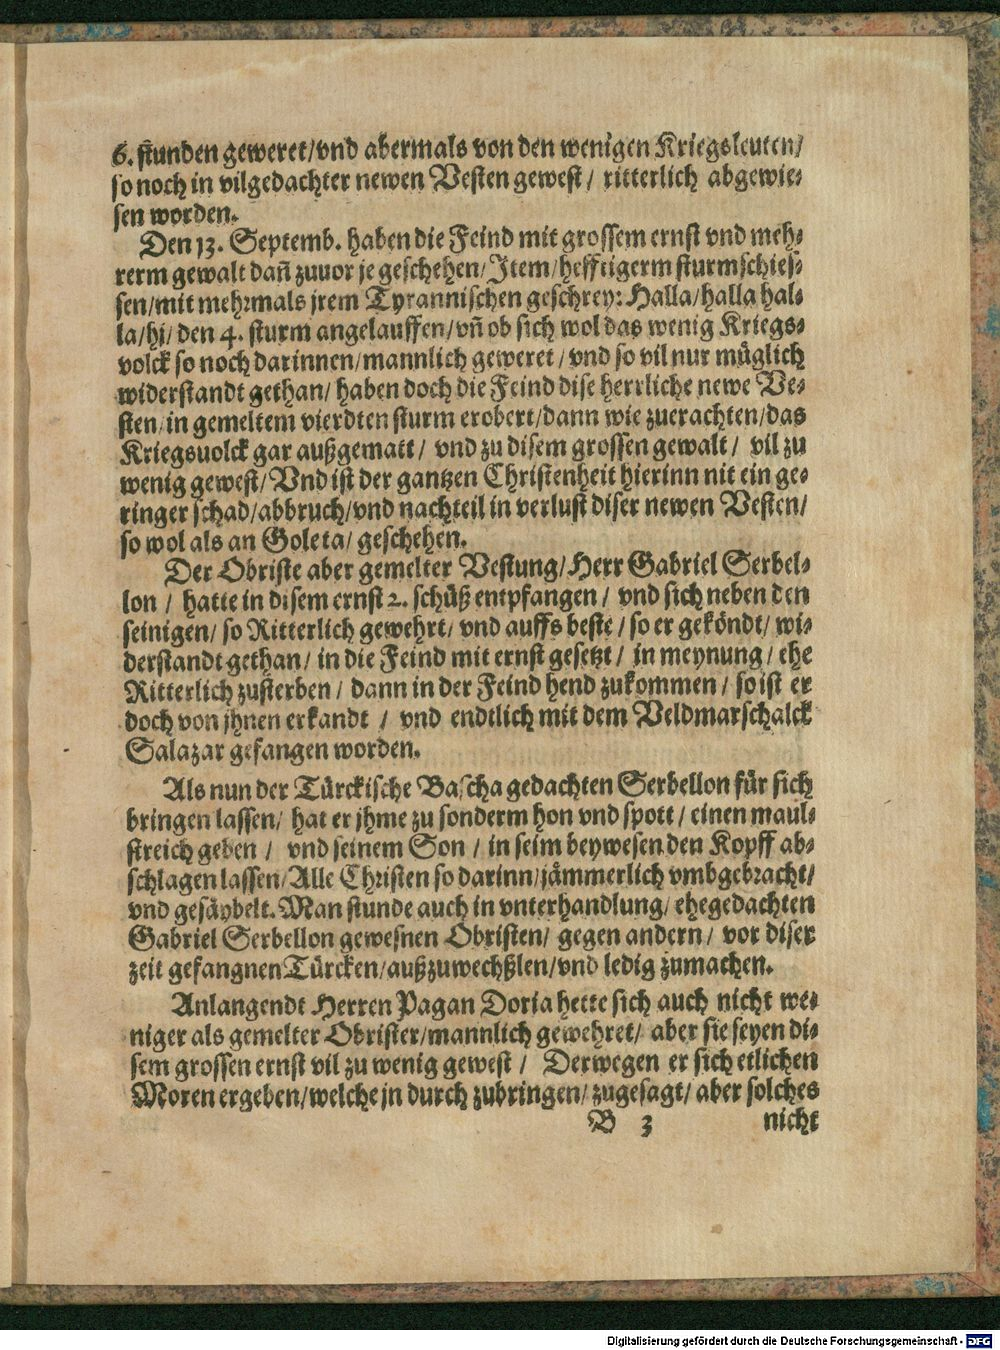 6. stunden geweret/vnd abermals von den wenigen Kriegsleuten/
so noch in vilgedachter newen Vesten gewest/ ritterlich abgewie⸗
sen worden.
Den 13. Septemb. haben die Feind mit grossem ernst vnd meh⸗
rerm gewalt dañ zuuor je geschehen/Item/hefftigerm sturmschies⸗
sen/mit mehrmals jrem Tyrannischen geschrey: Halla/halla hal⸗
la/hj/den 4. sturm angelauffen/vñ ob sich wol das wenig Kriegs⸗
volck so noch darinnen/mannlich geweret/vnd so vil nur müglich
widerstandt gethan/haben doch die Feind dise herrliche newe Ve⸗
sten/in gemeltem vierdten sturm erobert/dann wie zuerachten/das
Kriegsuolck gar außgematt/ vnd zu disem grossen gewalt/ vil zu
wenig gewest/Vnd ist der gantzen Christenheit hierinn nit ein ge⸗
ringer schad/abbruch/vnd nachteil in verlust diser newen Vesten/
so wol als an Goleta/ geschehen.
Der Obriste aber gemelter Vestung/Herr Gabriel Serbel⸗
lon/ hatte in disem ernst 2. schüß entpfangen/ vnd sich neben den
seinigen/so Ritterlich gewehrt/vnd auffs beste/so er geköndt/wi⸗
derstandt gethan/in die Feind mit ernst gesetzt/ in meynung/ehe
Ritterlich zusterben/dann in der Feind hend zukommen/so ist er
doch von jhnen erkandt / vnd endtlich mit dem Veldmarschalck
Salazar gefangen worden.
Als nun der Türckische Bascha gedachten Serbellon für sich
bringen lassen/ hat er jhme zu sonderm hon vnd spott/einen maul⸗
streich geben/ vnd seinem Son/in seim beywesen den Kopff ab⸗
schlagen lassen/Alle Christen so darinn/jämmerlich vmbgebracht/
vnd gesäybelt. Man stunde auch in vnterhandlung/ehegedachten
Gabriel Serbellon gewesnen Obristen/gegen andern/vor diser
zeit gefangnen Türcken/außzuwechßlen/vnd ledig zumachen.
Anlangendt Herren Pagan Doria hette sich auch nicht we⸗
niger als gemelter Obrister/mannlich gewehret/ aber sie seyen di⸗
sem grossen ernst vil zu wenig gewest/ Derwegen er sich etlichen
Moren ergeben/welche jn durch zubringen/zugesagt/aber solches
B 3 nicht
Digitalisierung gefördert durch die Deutsche Forschungsgemeinschaft - DFG